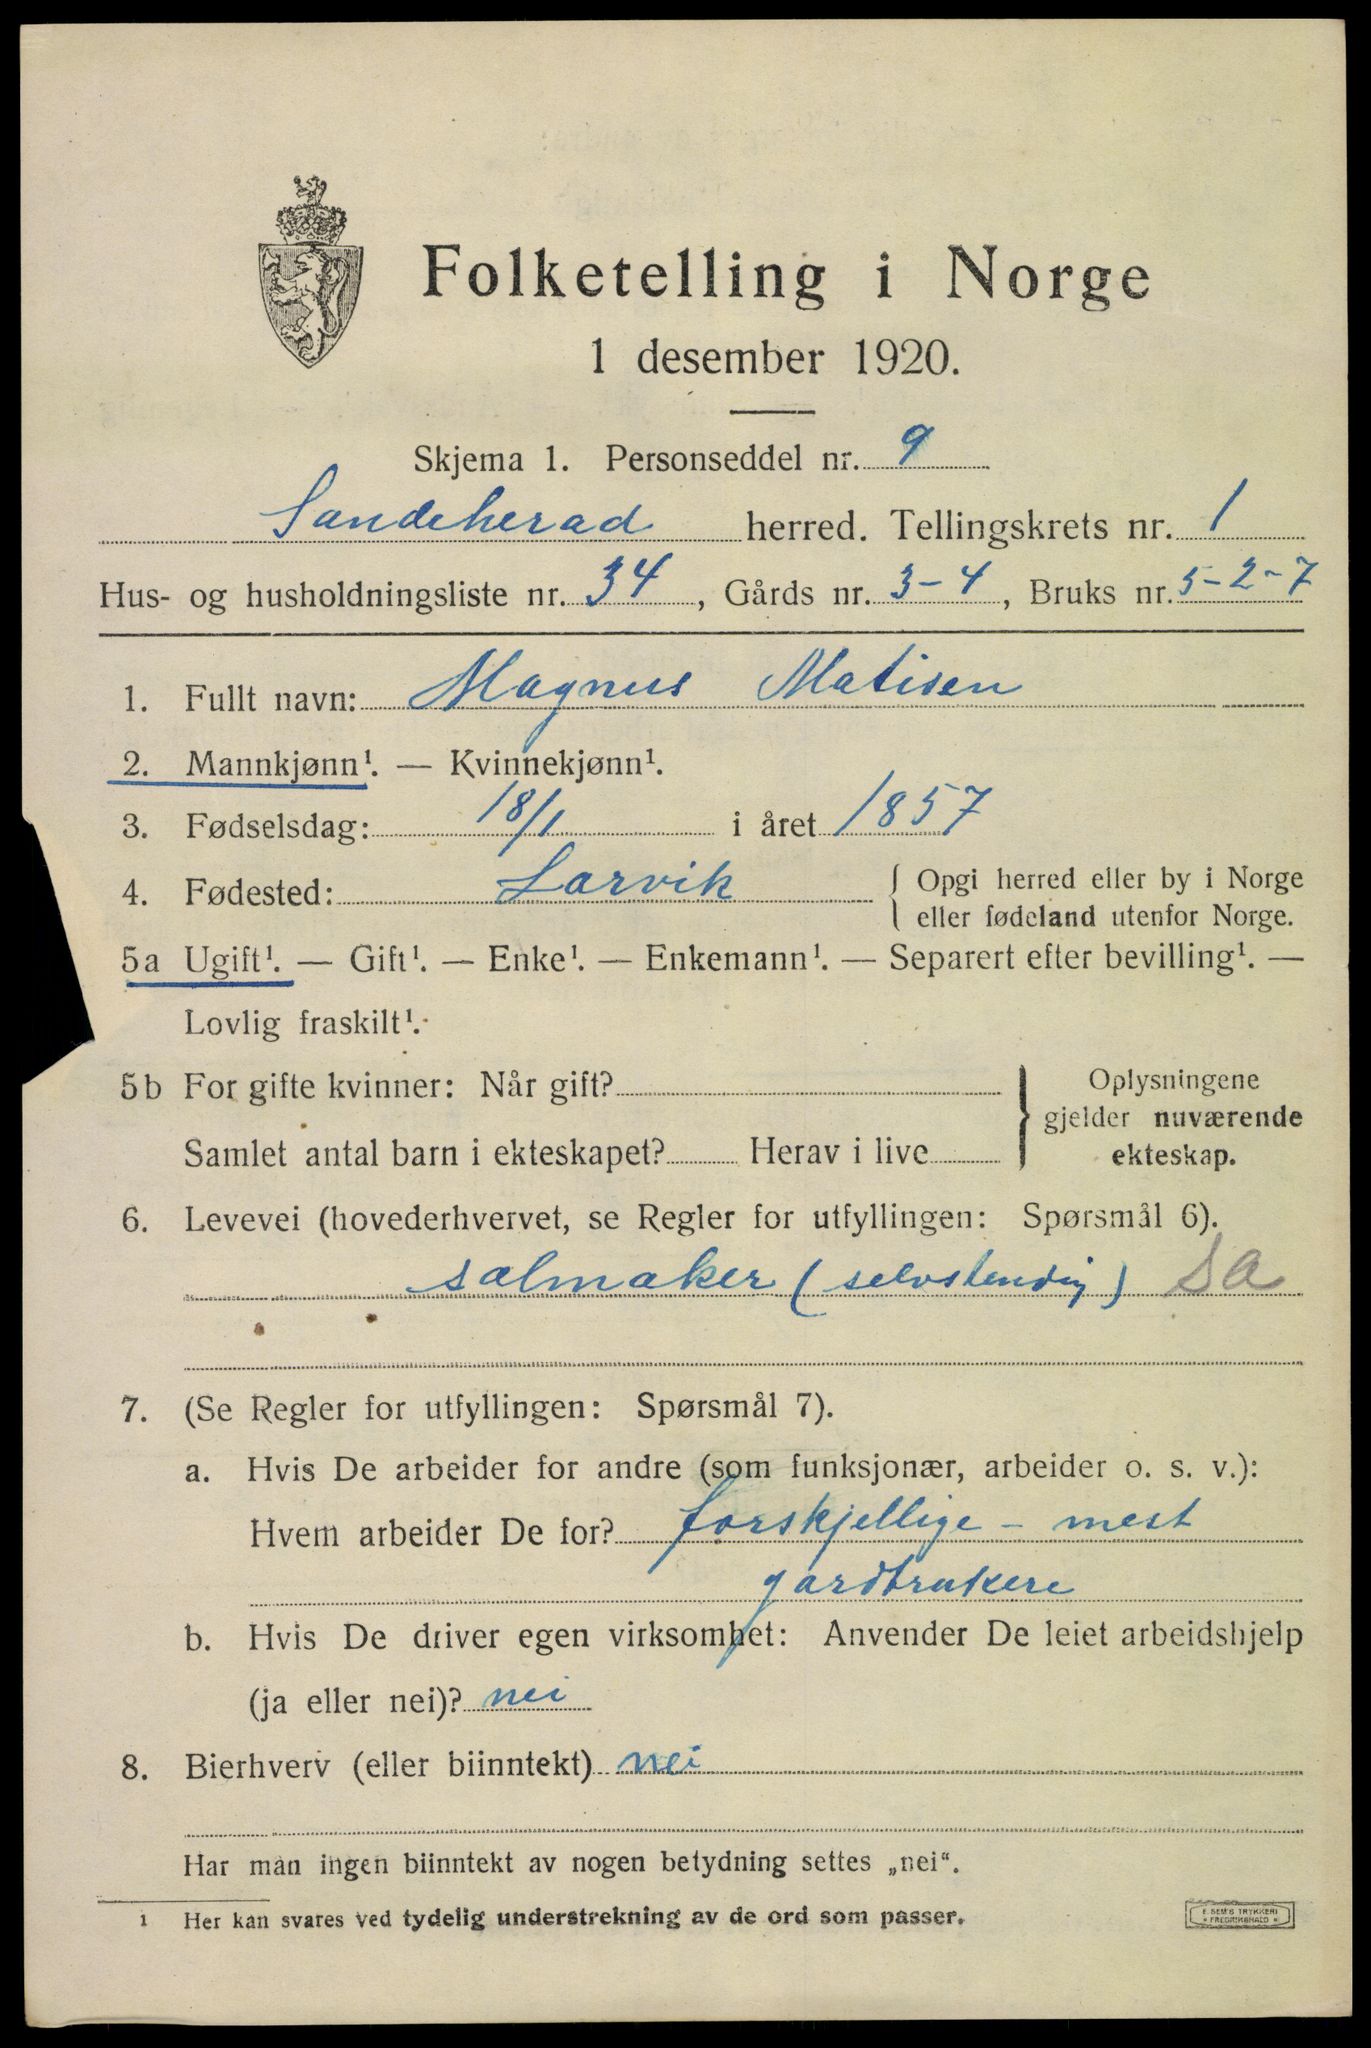 Folketelling i Norge
1 desember 1920.
Skjema 1. Personseddel nr. 9
Sandeherad herred. Tellingskrets nr. 1
Hus- og husholdningsliste nr. 34, Gårds nr. 3-4, Bruks nr. 5-2-7
1. Fullt navn: Magnus Matisen
2. Mannkjønn¹. — Kvinnekjønn¹.
3. Fødselsdag: 18/1 i året 1857
4. Fødested: Larvik { Opgi herred eller by i Norge
eller fødeland utenfor Norge.
5a Ugift¹. — Gift¹. — Enke¹. — Enkemann¹. — Separert efter bevilling¹. —
Lovlig fraskilt¹.
5b For gifte kvinner: Når gift? Oplysningene
gjelder nuværende
Samlet antal barn i ekteskapet? Herav i live ekteskap.
6. Levevei (hovederhvervet, se Regler for utfyllingen: Spørsmål 6).
salmaker (selvstendig) SA
7. (Se Regler for utfyllingen: Spørsmål 7).
a. Hvis De arbeider for andre (som funksjonær, arbeider o. s. v.):
Hvem arbeider De for? forskjellige - mest
gardbrukere
b. Hvis De driver egen virksomhet: Anvender De leiet arbeidshjelp
(ja eller nei)? nei
8. Bierhverv (eller biinntekt) nei
Har man ingen biinntekt av nogen betydning settes „nei“.
¹ Her kan svares ved tydelig understrekning av de ord som passer.
E. SEM'S TRYKKERI
• FREDRIKSHALD •